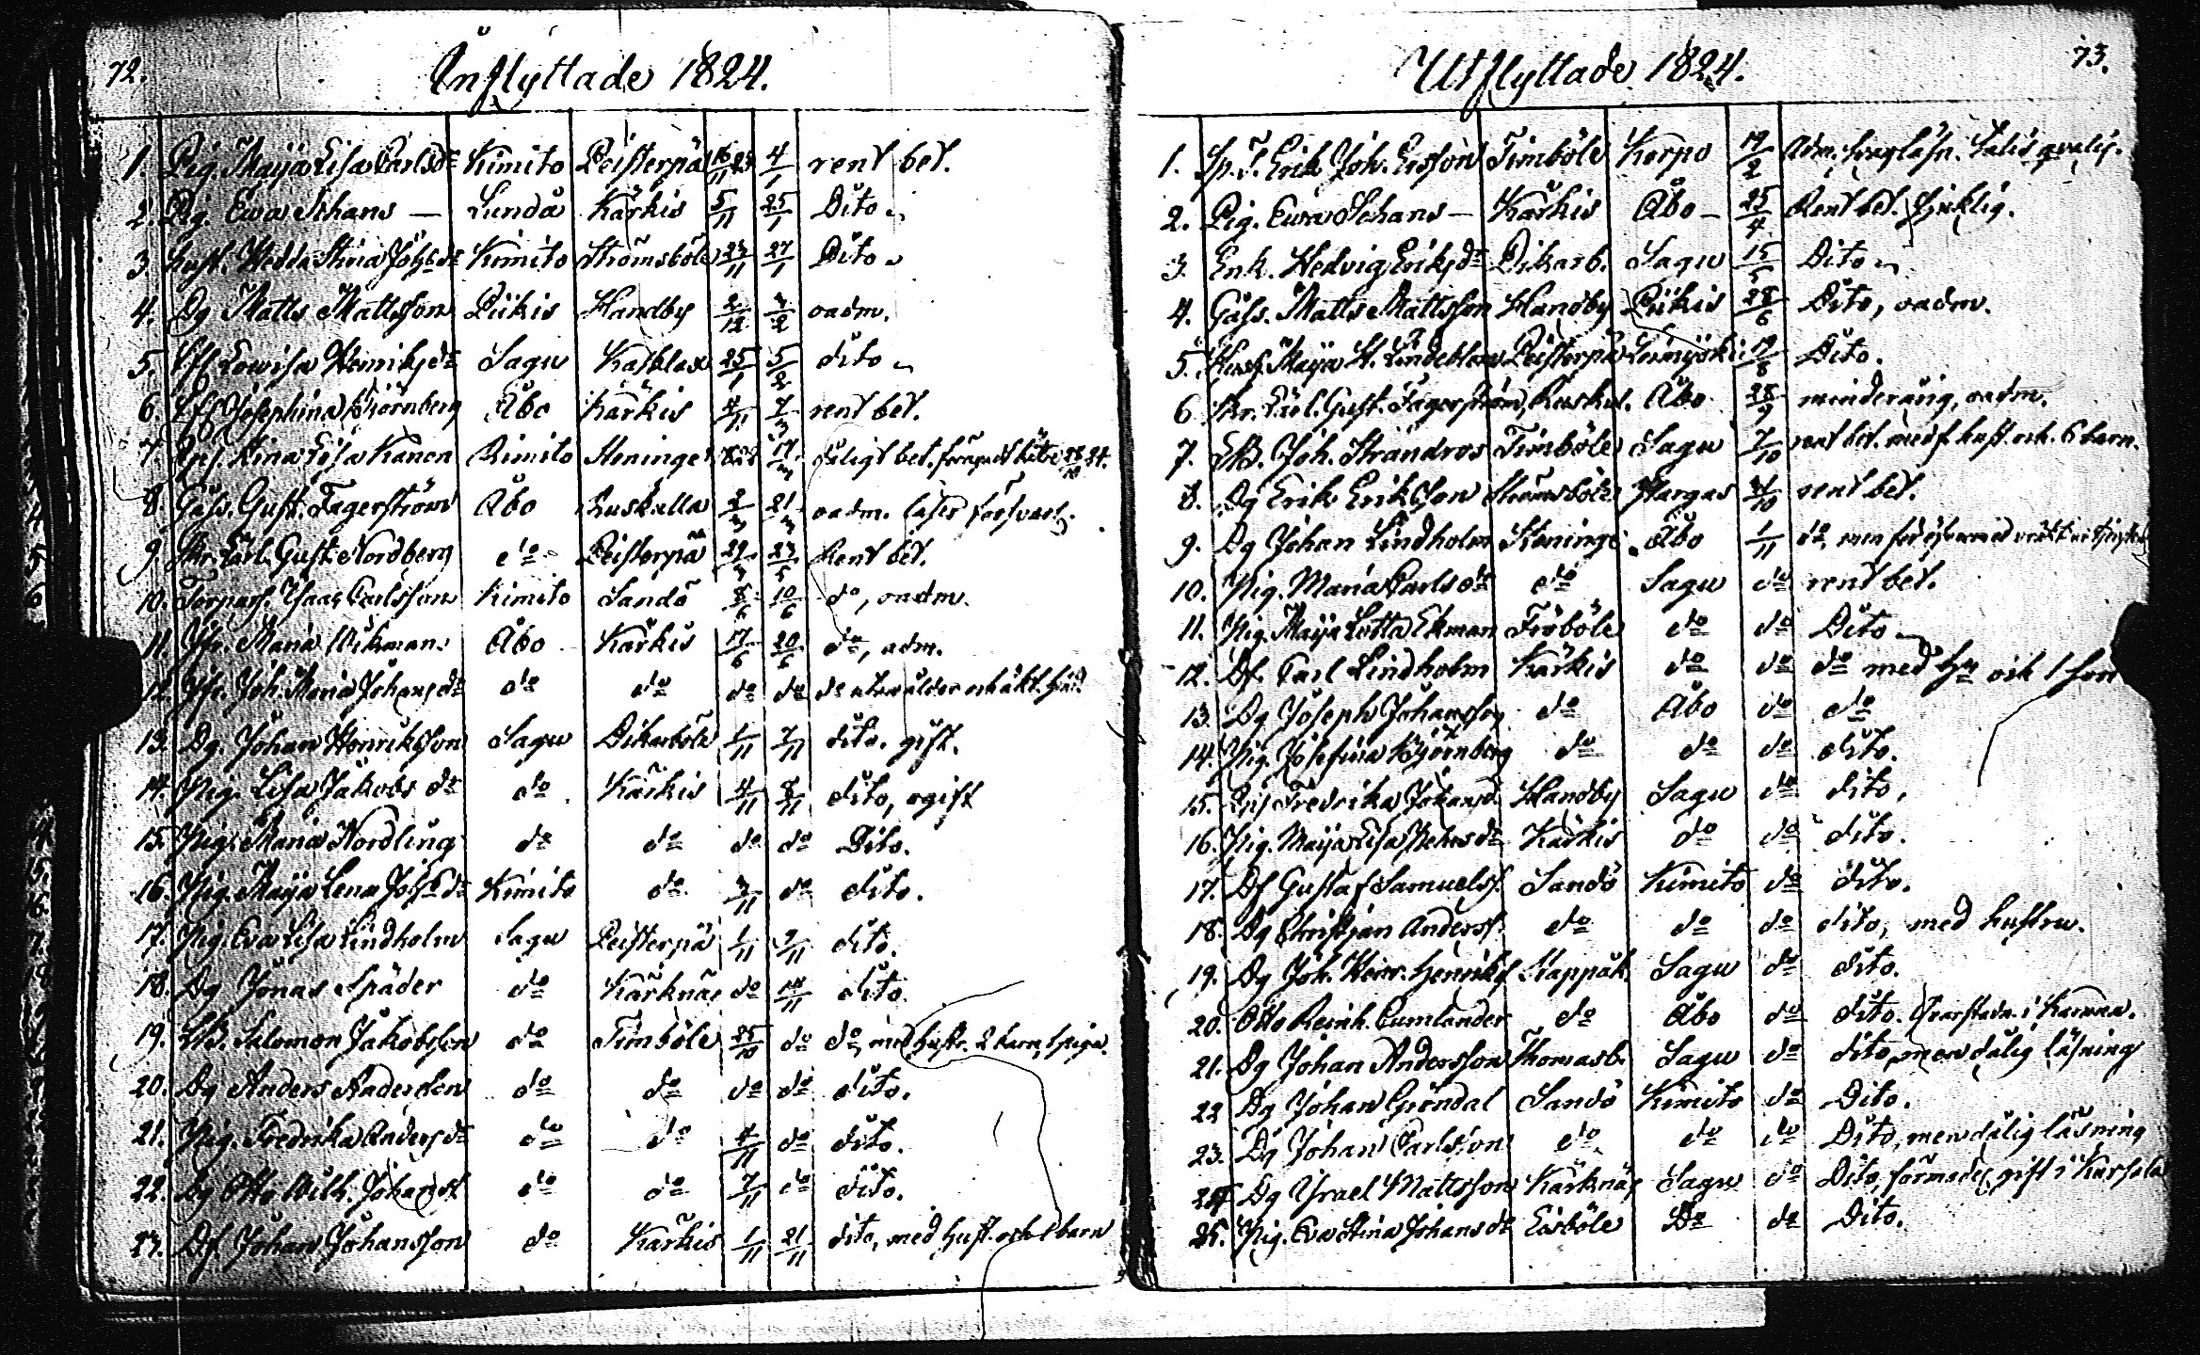 72.
Inflyttade 1824.
1. Pig. Maija Lisa Carlsdr Kimito Peisterpä 16/11 23 4/1 rent bet.
2. Pig. Ewa Schans — Lundå Kärkis 5/11 25/1 Dito
3. Hust. Hedda Stina Joh:sdr Kimito Strömsböle 23/11 27/1 Dito
4. Dg Matts Mattsson Piikis Handby 2/12 3/2 oadm.
5. Lovisa Henriksdr Sagu Kasklax 25/1 5/2 dito
6. Josephina Björnberg Åbo Kärkis 4/11 7/3 rent bet.
7. Lisa Kimito Steninge 17/3
8. Gåss. Gust. Fagerström Åbo Ruskulla 2/3 21/3 oadm. läser försvarl.
9. Skr. Carl Gust. Nordberg do Peisterpä 29/3 23/5 Rent bet.
10. Torpars. Isaac Carlsson Kimito Sandö 8/6 10/6 do, oadm.
11. Jfr. Maria Wikman Åbo Kärkis 17/6 20/6 do, adm.
12. Jfr. Joh. Maria Johansdr do do do do do
13. Dg. Johan Henriksson Sagu Dikarböle 1/11 7/11 dito. gift.
14. Pig. Lisa Jakobsdr do Kärkis 4/11 8/11 dito, ogift
15. Pig. Maria Nordling do do do do Dito.
16. Pig. Maija Lena Joh:sdr Kimito do 3/11 do dito.
17. Pig. Eva Lisa Lindholm Sagu Peisterpä 1/11 9/11 dito.
18. Dg Jonas Späder do Kärknäs do 14/11 dito.
19. Salomon Jakobsson do Timböle 25/10 do do, med hustr. 2 barn,
20. Dg Anders Andersson do do do do dito.
21. Pig. Fredrika Andersdr do do 4/11 do dito.
22. Dg Otto Wilh. Johanss. do do 7/11 do dito.
23. Df. Johan Johansson do Kärkis 1/11 21/11 dito, med hust. och 1 barn
73.
Utflyttade 1824.
1. Erik Joh. Ersson Timböle Korpo 19/2 Adm.
2. Pig. Ewa Schans — Kärkis Åbo — 25/4 Rent bet.
3. Enk. Hedvig Eriksdr Dikarb. Sagu 15/5 Dito
4. Gåss. Matts Mattsson Handby Piikis 28/6 Dito, oadm.
5. Maja St. Lindeblom Peisterpä 19/8 Dito.
6. Skr. Carl. Gust. Fagerström, Ruskul. Åbo 28/9 minderårig, oadm.
7. Joh. Strandros Timböle Sagu 7/10 rent bet. med hust. och 6 barn.
8. Dg Erik Eriksson Strömsböle Pargas 4/10 rent bet.
9. Dg Johan Lindholm Steninge Åbo 1/11 do, men
10. Pig. Maria Carlsdr do Sagu do rent bet.
11. Pig. Maija Lotta Ekman Fröböle do do Dito
12. Df. Carl Lindholm Kärkis do do do med Hu och 1 son
13. Dg Joseph Johansson do Åbo do do
14. Pig. Josefina Björnberg do do do dito.
15. Pig Fredrika Johansd. Handby Sagu do dito,
16. Pig. Maija Lisa Kärkis do do dito.
17. Df Gustaf Samuelss. Sandö Kimito do dito.
18. Dg Christjan Anderss. do do do dito, med hustru.
19. Dg Joh. Henr. Henrikss. Kappäk. Sagu do dito.
20. Otto Reinh. Cumlander do Åbo do dito. i
21. Dg Johan Andersson Thomasb. Sagu do dito, men dålig läsning
22. Dg Johan Gröndal Sandö Kimito do Dito.
23. Dg Johan Carlsson do do do Dito, men dålig läsning
24. Dg Israel Mattsson Kärknäs Sagu do Dito, gift i
25. Pig. Eva Stina Johansdr Eisböle Do do Dito.